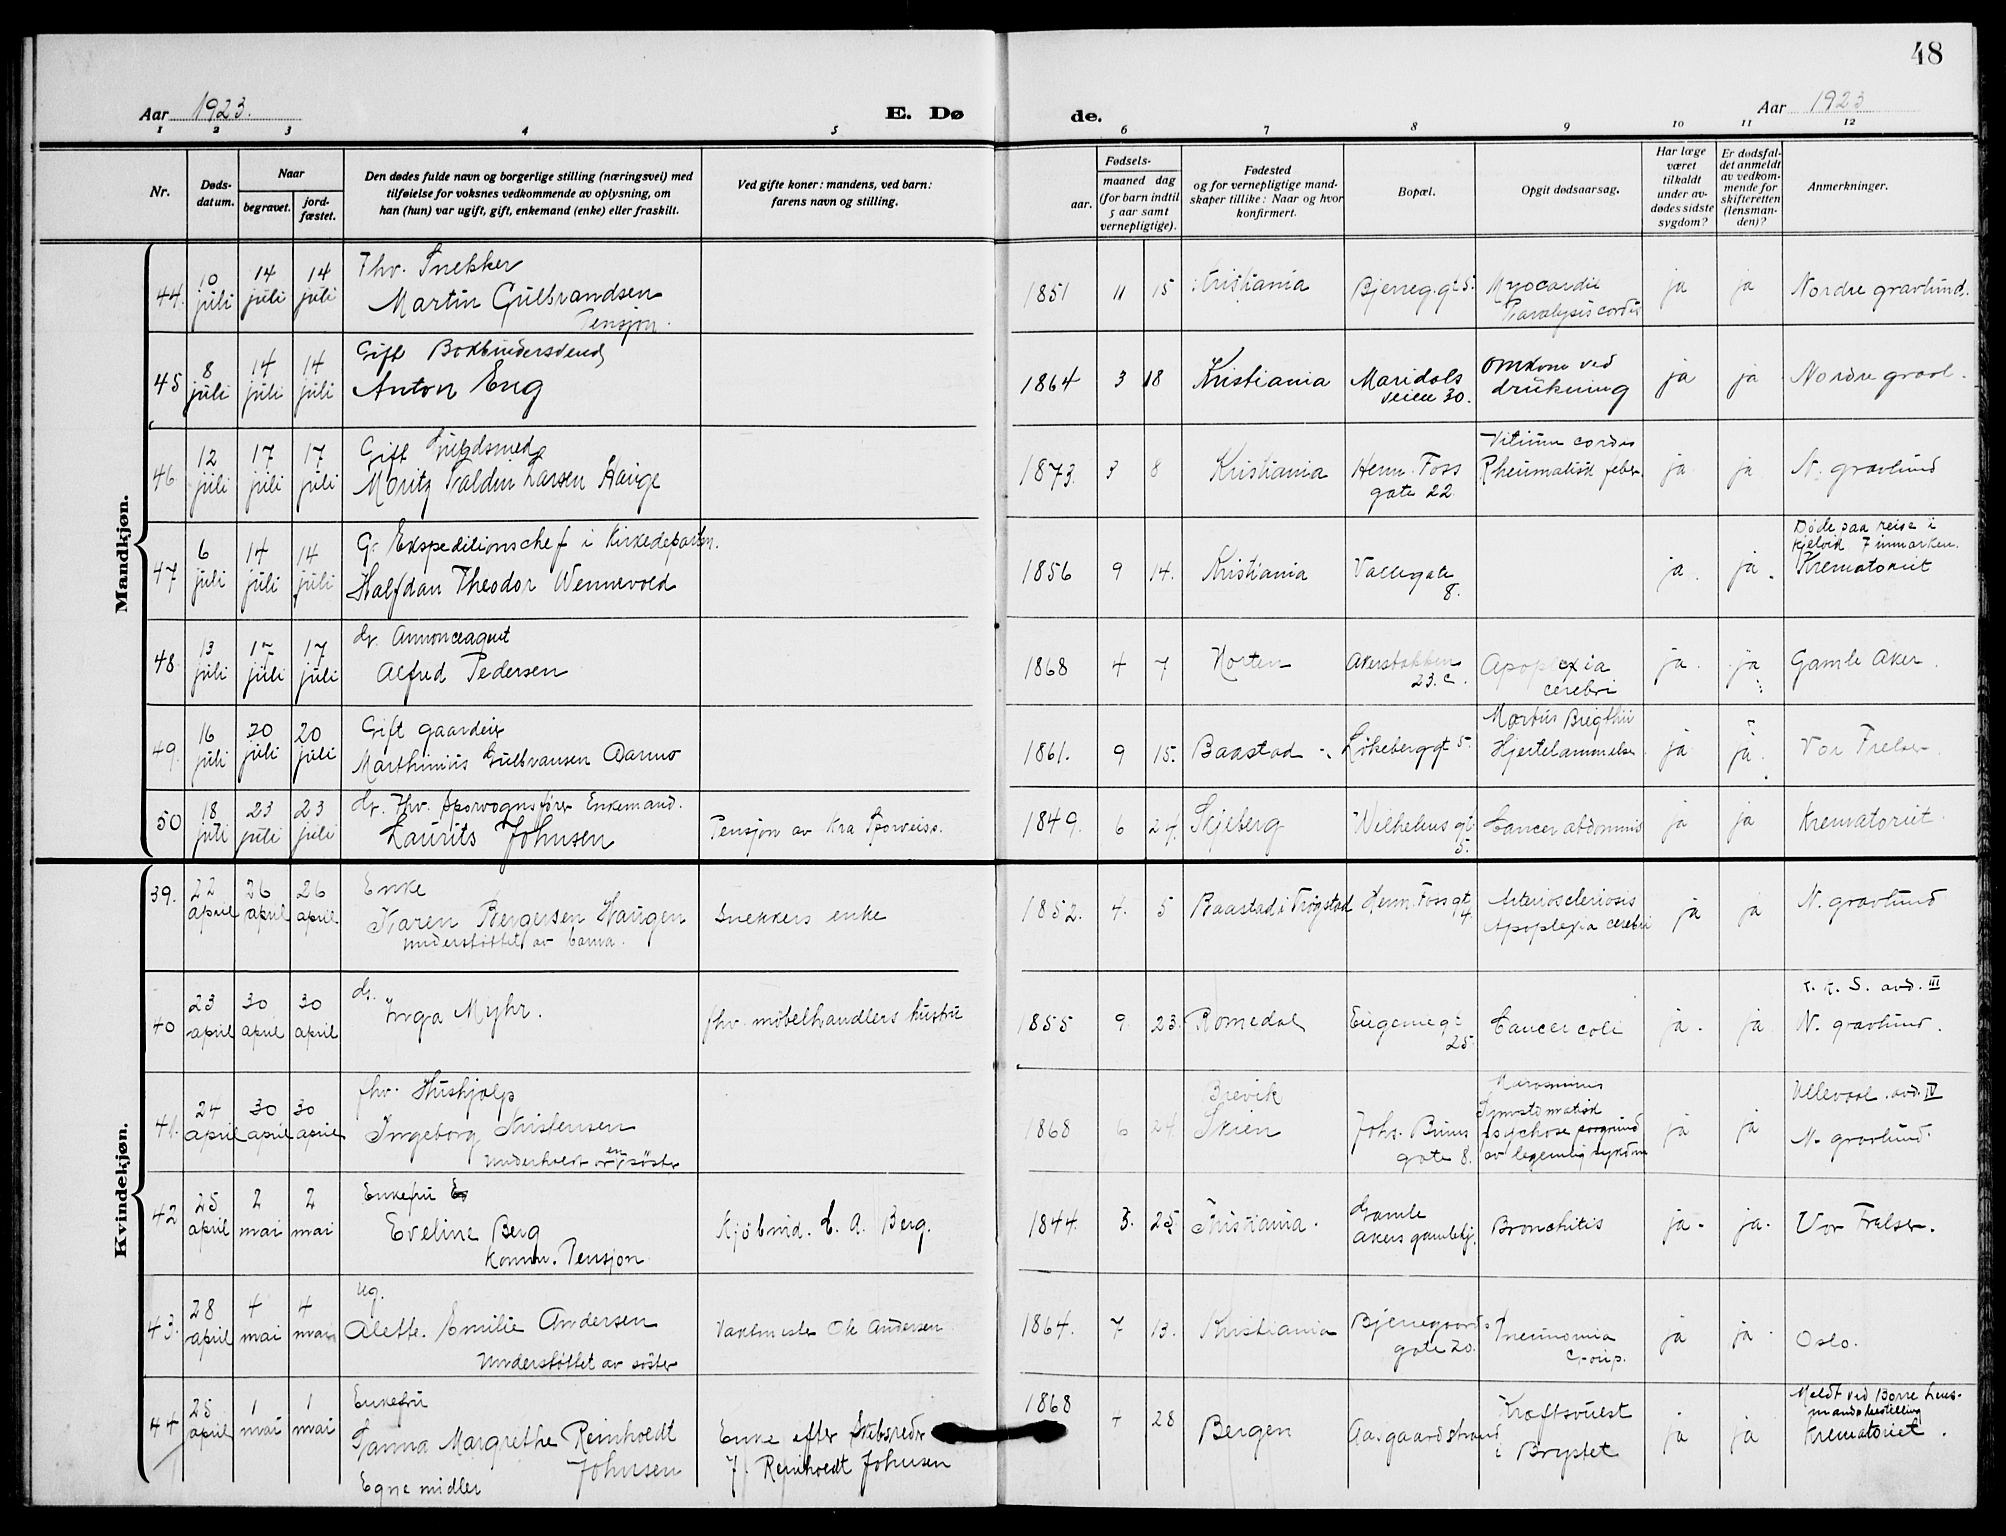 48
Aar 1923.
E. Døde.
Aar 1923
1 2 3 4 5 6 7 8 9 10 11 12
Nr.
Døds-
datum.
Naar
begravet.
jord-
fæstet.
Den dødes fulde navn og borgerlige stilling (næringsvei) med
tilføielse for voksnes vedkommende av oplysning, om
han (hun) var ugift, gift, enkemand (enke) eller fraskilt.
Ved gifte koner: mandens, ved barn:
farens navn og stilling.
Fødsels-
aar.
maaned dag
(for barn indtil
5 aar samt
vernepligtige).
Fødested
og for vernepligtige mand-
skaper tillike: Naar og hvor
konfirmert.
Bopæl.
Opgit dødsaarsag.
Har læge
været
tilkaldt
under av-
dødes sidste
sygdom?
Er dødsfal-
det anmeldt
av vedkom-
mende for
skifteretten
(lensman-
den)?
Anmerkninger.
Mandkjøn.
44. 10 juli 14 juli 14 juli
Fhv. Snekker
Martin Gulbrandsen
Pensjon.
1851 11 15 Kristiania Bjerreg.gt 5. Myocardie
Paralysis cordis
ja ja Nordre gravlund.
45 8 juli 14 juli 14 juli
Gift Bokbindersvend
Anton Eng
1864 3 18 Kristiania Maridals
veien 30.
Omkom ved
drukning
ja ja Nordre gravl.
46 12 juli 17 juli 17 juli
Gift Guldsmed
Moritz Larsen Hauge
1873. 3 8 Kristiania Herm. Foss
gate 22.
Vitium cordis
Rheumatisk feber.
ja ja N. gravlund
47 6 juli 14 juli 14 juli
G. Ekspeditionschef i Kirkedeparten.
Halfdan Theodor Wennevold
1856 9 14. Kristiania Vallegate
8.
ja. ja.
Døde paa reise i
Kjelvik Finmarken.
Krematoriet
48 13 juli 17 juli 17 juli
Annonceagent
Alfred Pedersen
1868 4 7 Horten Akersbakken
23.c.
Apoplexia
cerebri
ja. ja Gamle Aker.
49. 16 juli 20 juli 20 juli
Gift gaardeier
Marthinius Gulbransen
1861. 9 15. Baastad Løkeberggt 5.
Morbus Brigthii
Hjertelammelse
ja ja. Vor Frelser.
50 18 juli 23 juli 23 juli
Fhv. sporvognsfører Enkemand.
Laurits Johnsen
Pensjon av Kra Sporveiss.
1849. 6 24. Skjeberg Wilhelms gt
5.
Cancer abdominis
ja ja Krematoriet.
Kvindekjøn.
39. 22 april 26 april 26 april
Enke
Karen Bergersen Haugen
understøttet av barna.
Snekkers enke
1852. 4. 5 Baastad i Trøgstad Herm. Foss gt
4.
Arteriosclerosis
Apoplexia cerebri
ja ja N. gravlund
40 23 april 30 april 30 april
Inga Myhr.
fhv. møbelhandlers hustru
1855 9 23. Romedal Eugenie gt
25.
Cancer coli
ja. ja
K. K. S. avd. III
N. gravlund.
41. 24 april 30 april 30 april
fhv. Hushjælp
Ingeborg Kristensen
Underholdt av en søster
1868 6 24. Brevik
Skien
Johs. Bruns
gate 8.
Marasmus
Symptomatisk
psychose paagrund
av legemlig sykdom
ja ja
Ullevaal. avd. IV
N. gravlund.
42 25 april 2 mai 2 mai
Enkefru
Eveline Berg
Komm. Pensjon.
Kjøbmd. C. A. Berg.
1844. 3. 25 Kristiania. Gamle
Akers gamlehj.
Bronchitis
ja. ja. Vor Frelser.
43. 28 april 4 mai 4 mai
Ug.
Alette. Emilie Andersen
Understøttet av søster
Vaktmester Ole Andersen
1864. 7 13. Kristiania Bjerregaards
gate 20.
Pneumonia
Croup.
ja ja. Oslo.
44 25 april 1 mai 1 mai
Enkefru
Janna Margrethe Reinhoedt
Johnsen
Egne midler
Enke efter Skibsreder
J. Reinhoedt Johnsen
1868 4 28 Bergen Aasgaardstrand
Kræftsvulst
i Brystet
ja ja
Meldt ved Borre Lens-
mandsbestilling
Krematoriet.